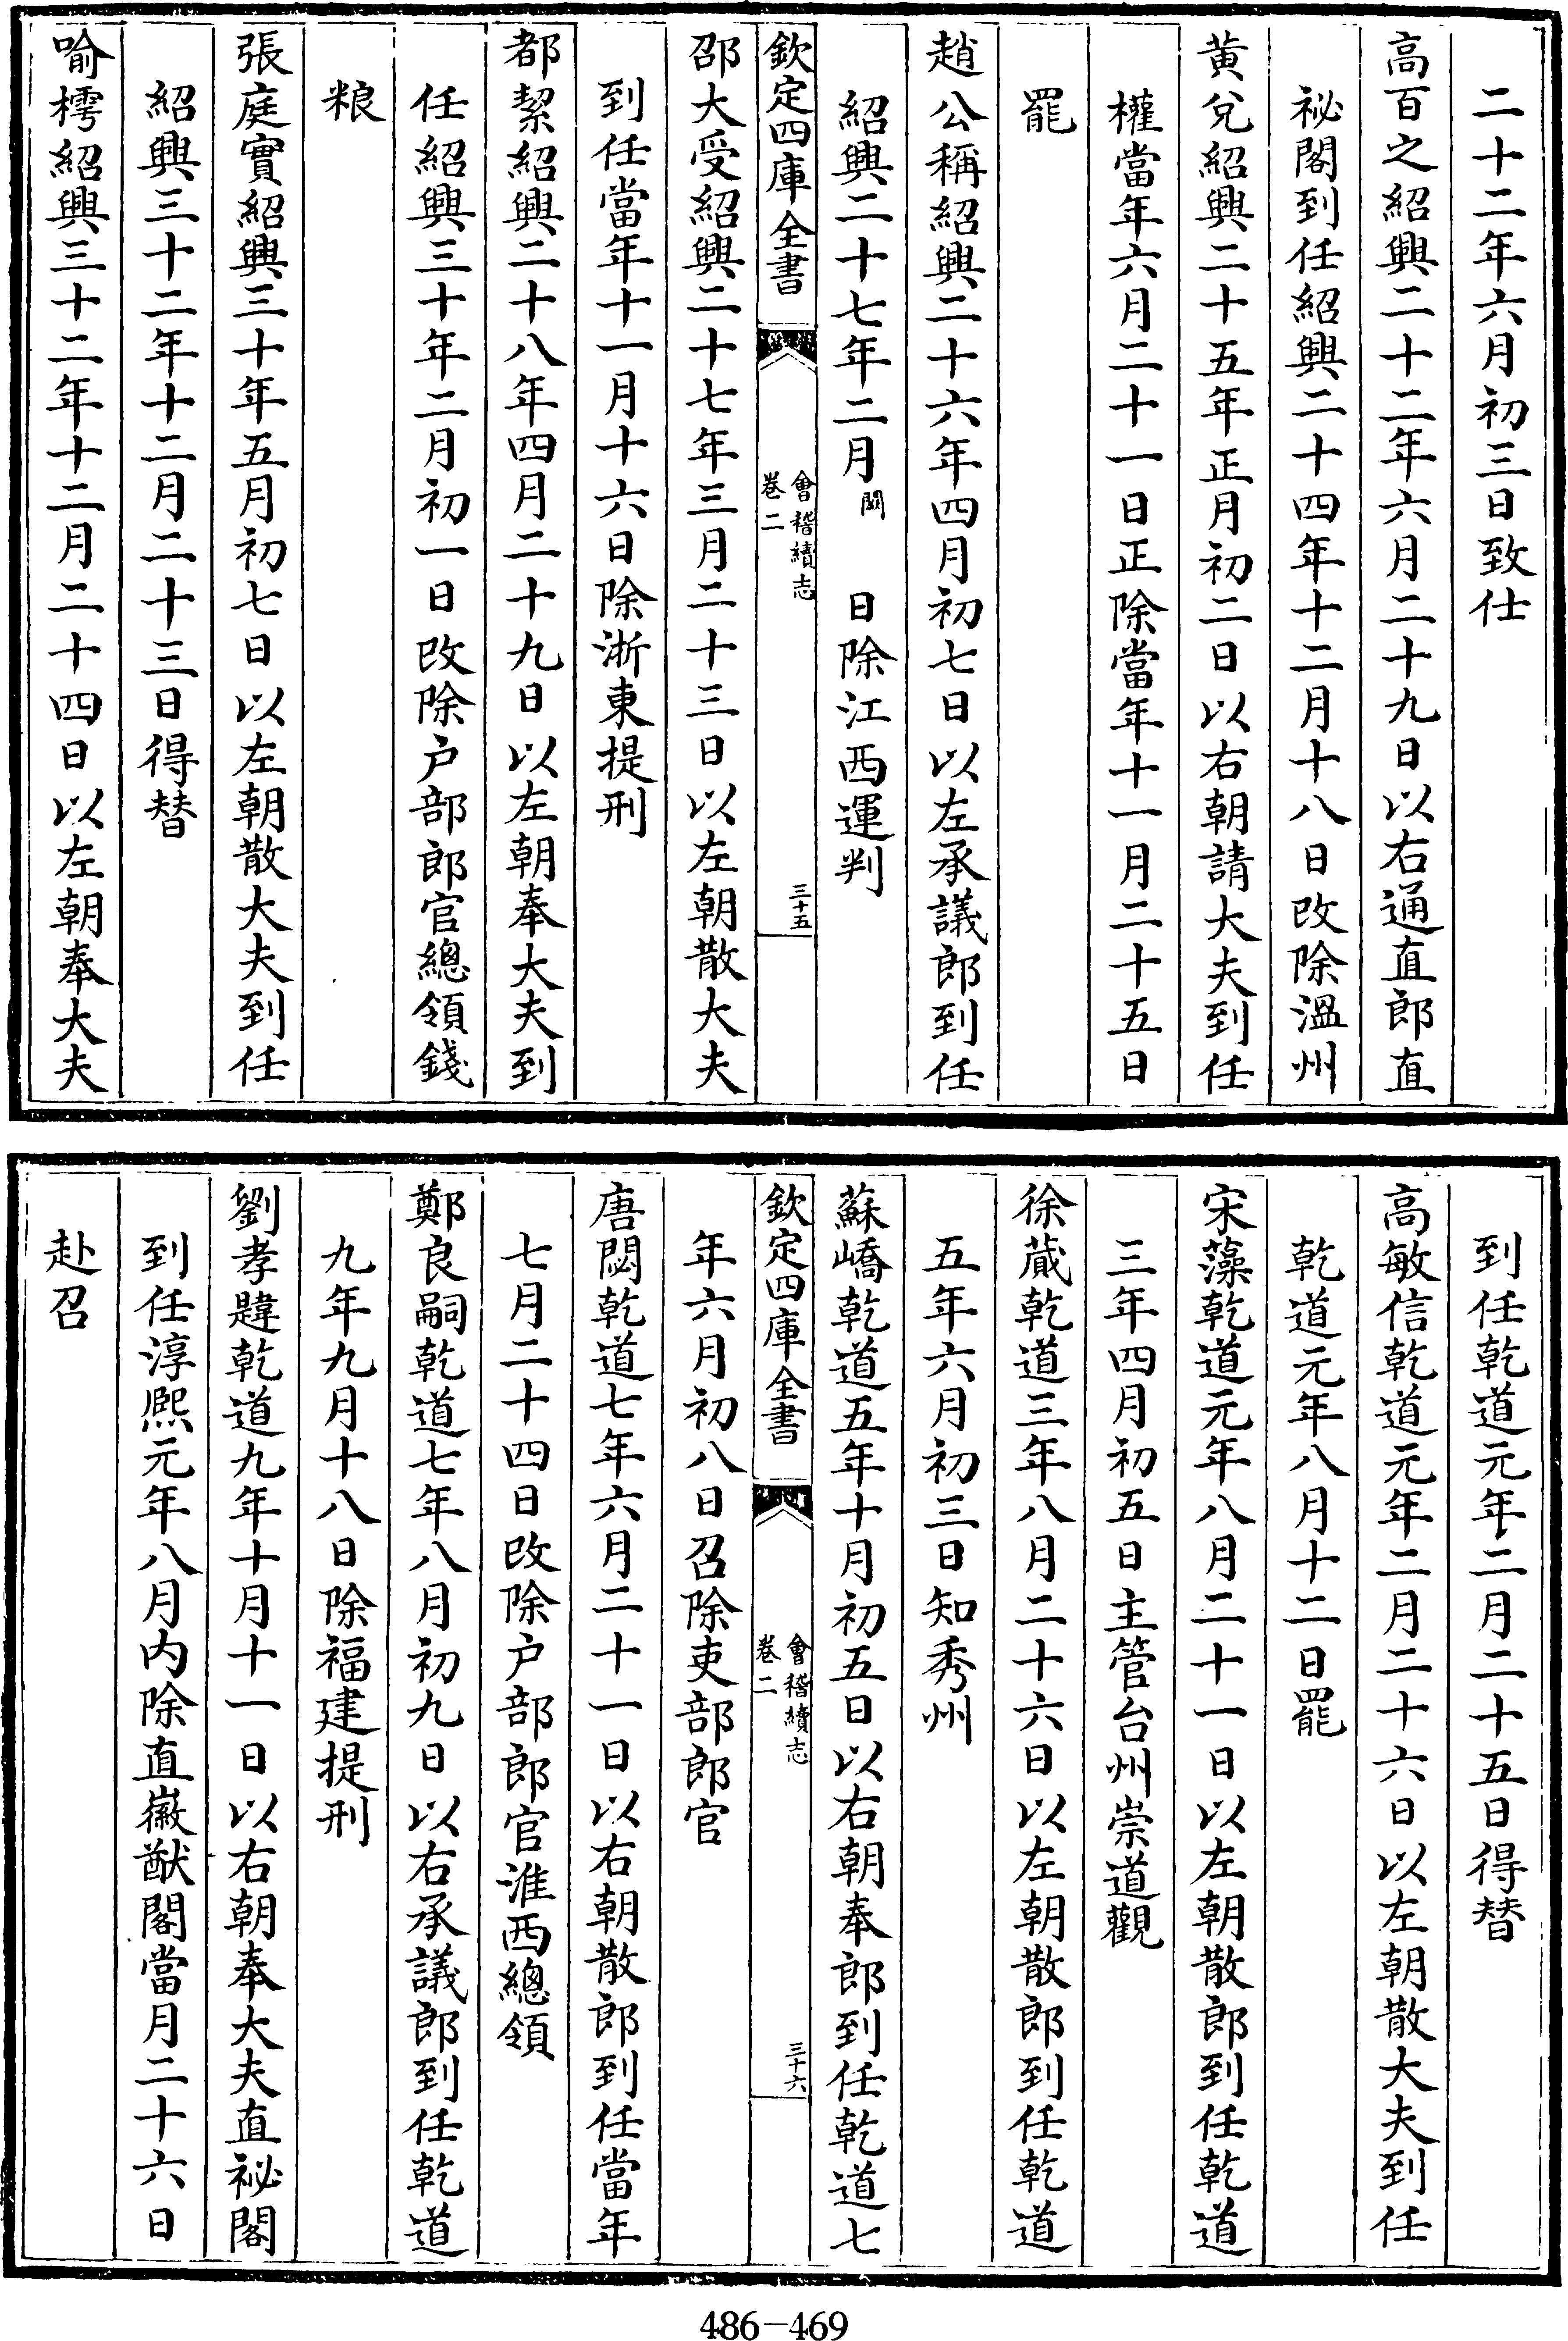 二十二年六月初三日致仕
高百之紹興二十二年六月二十九日以右通直郎直
祕閣到任紹興二十四年十二月十八日改除溫州
黄兌紹興二十五年正月初二日以右朝請大夫到任
權當年六月二十一日正除當年十一月二十五日
罷
趙公稱紹興二十六年四月初七日以左承議郎到任
紹興二十七年二月闕日除江西運判
欽定四庫全書
會稽續志
卷二
三十五
邵大受紹興二十七年三月二十三日以左朝散大夫
到任當年十一月十六日除浙東提刑
都絜紹興二十八年四月二十九日以左朝奉大夫到
任紹興三十年二月初一日改除户部郎官總領錢
粮
張庭實紹興三十年五月初七日以左朝散大夫到任
紹興三十二年十二月二十三日得替
喻樗紹興三十二年十二月二十四日以左朝奉大夫
到任乾道元年二月二十五日得替
高敏信乾道元年二月二十六日以左朝散大夫到任
乾道元年八月十二日罷
宋藻乾道元年八月二十一日以左朝散郎到任乾道
三年四月初五日主管台州崇道觀
徐蕆乾道三年八月二十六日以左朝散郎到任乾道
五年六月初三日知秀州
蘇嶠乾道五年十月初五日以右朝奉郎到任乾道七
欽定四庫全書
會稽續志
卷二
三十六
年六月初八日召除吏部郎官
唐閱乾道七年六月二十一日以右朝散郎到任當年
七月二十四日改除户部郎官淮西總領
鄭良嗣乾道七年八月初九日以右承議郎到任乾道
九年九月十八日除福建提刑
劉孝韙乾道九年十月十一日以右朝奉大夫直祕閣
到任淳熙元年八月内除直徽猷閣當月二十六日
赴召
486-469